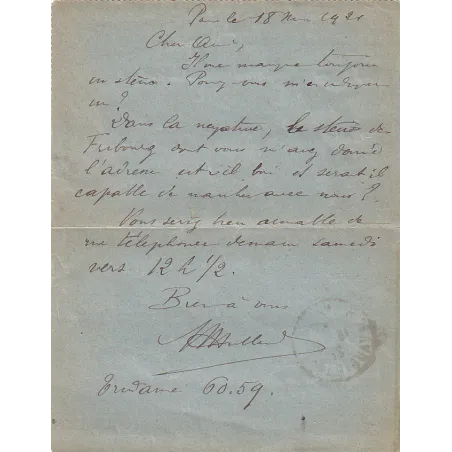 le 18 1921
Cher Ami,
Il me manque toujours
un sténo. Pouvez-vous m'en indiquer
un?
Dans la négative, le sténo de
Fribourg dont vous m'avez donné
l'adresse est-il bon et serait-il
capable de marcher avec nous?
Vous seriez bien aimable de
me téléphoner demain samedi
vers 12 h 1/2.
Bien à vous
Trudaine 60.59.